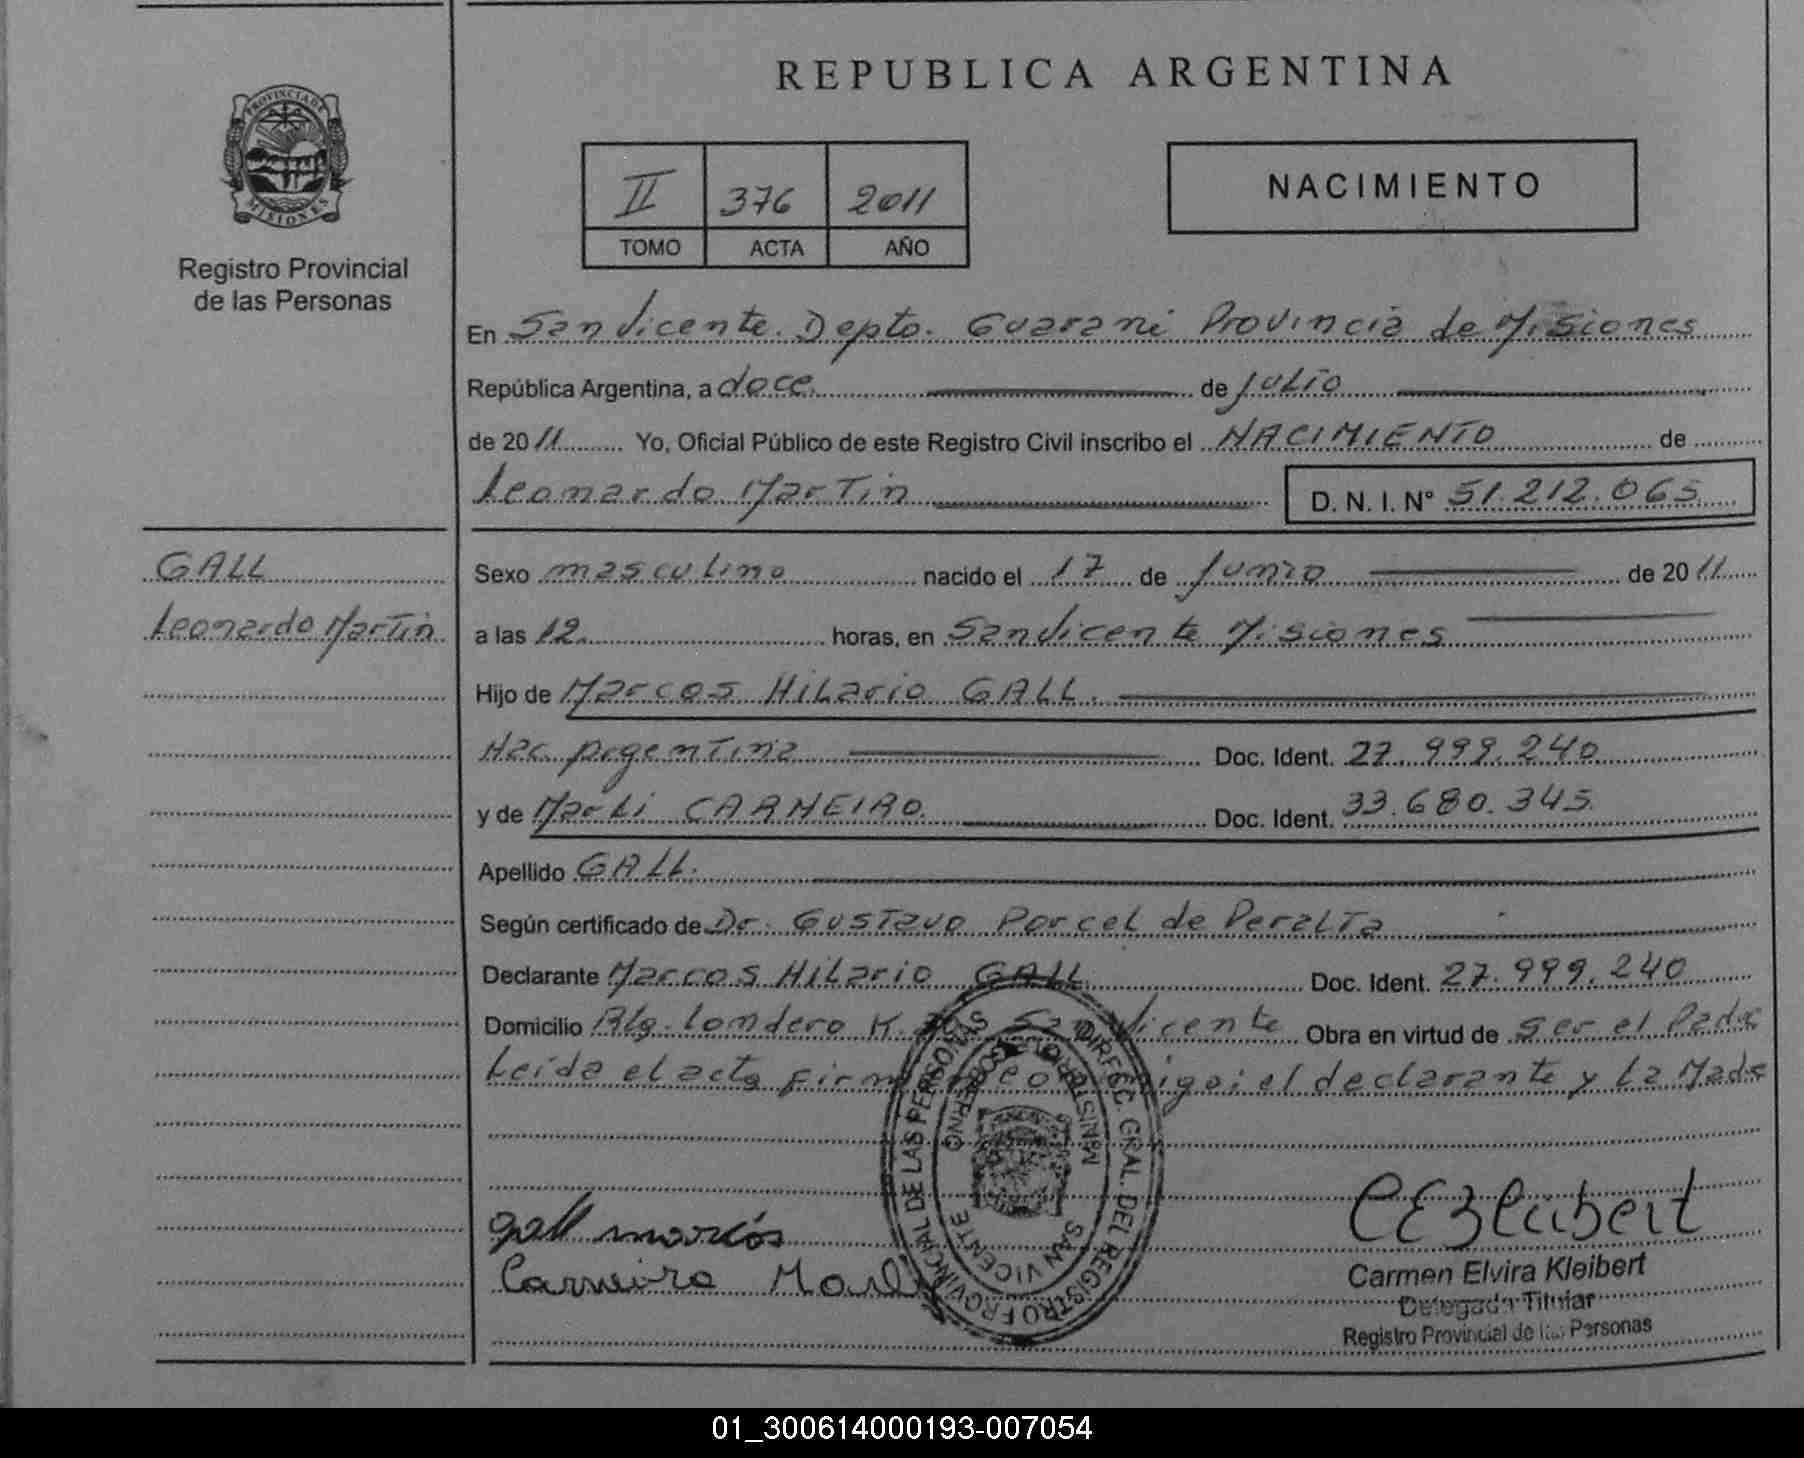 PROVINCIA DE
MISIONES
Registro Provincial
de las Personas
GALL
Leonardo Martin
REPUBLICA ARGENTINA
II 376 2011
TOMO ACTA AÑO
NACIMIENTO
En San Vicente. Depto. Guarani Provincia de Misiones
República Argentina, a doce. de julio
de 2011 Yo, Oficial Público de este Registro Civil inscribo el NACIMIENTO de
Leonardo Martin D. N. I. N° 51.212.065
Sexo masculino nacido el 17 de Junio de 2011
a las 12. horas, en San Vicente Misiones
Hijo de Marcos Hilario GALL.
Nac. Argentina Doc. Ident. 27.999.240
y de Marli CARNEIRO. Doc. Ident. 33.680.345.
Apellido GALL.
Según certificado de Dr. Gustavo Porcel de Peralta
Declarante Marcos Hilario GALL Doc. Ident. 27.999.240
Domicilio Londero K. San Vicente Obra en virtud de ser el Padre
Leida el acta el declarante y la Madre
DIREC. GRAL. DEL REGISTRO PROVINCIAL DE LAS PERSONAS
MINISTERIO GOBIERNO
SAN VICENTE
gall marcos
Carneiro Marli
CEKleibert
Carmen Elvira Kleibert
Delegada Titular
Registro Provincial de las Personas
01_300614000193-007054